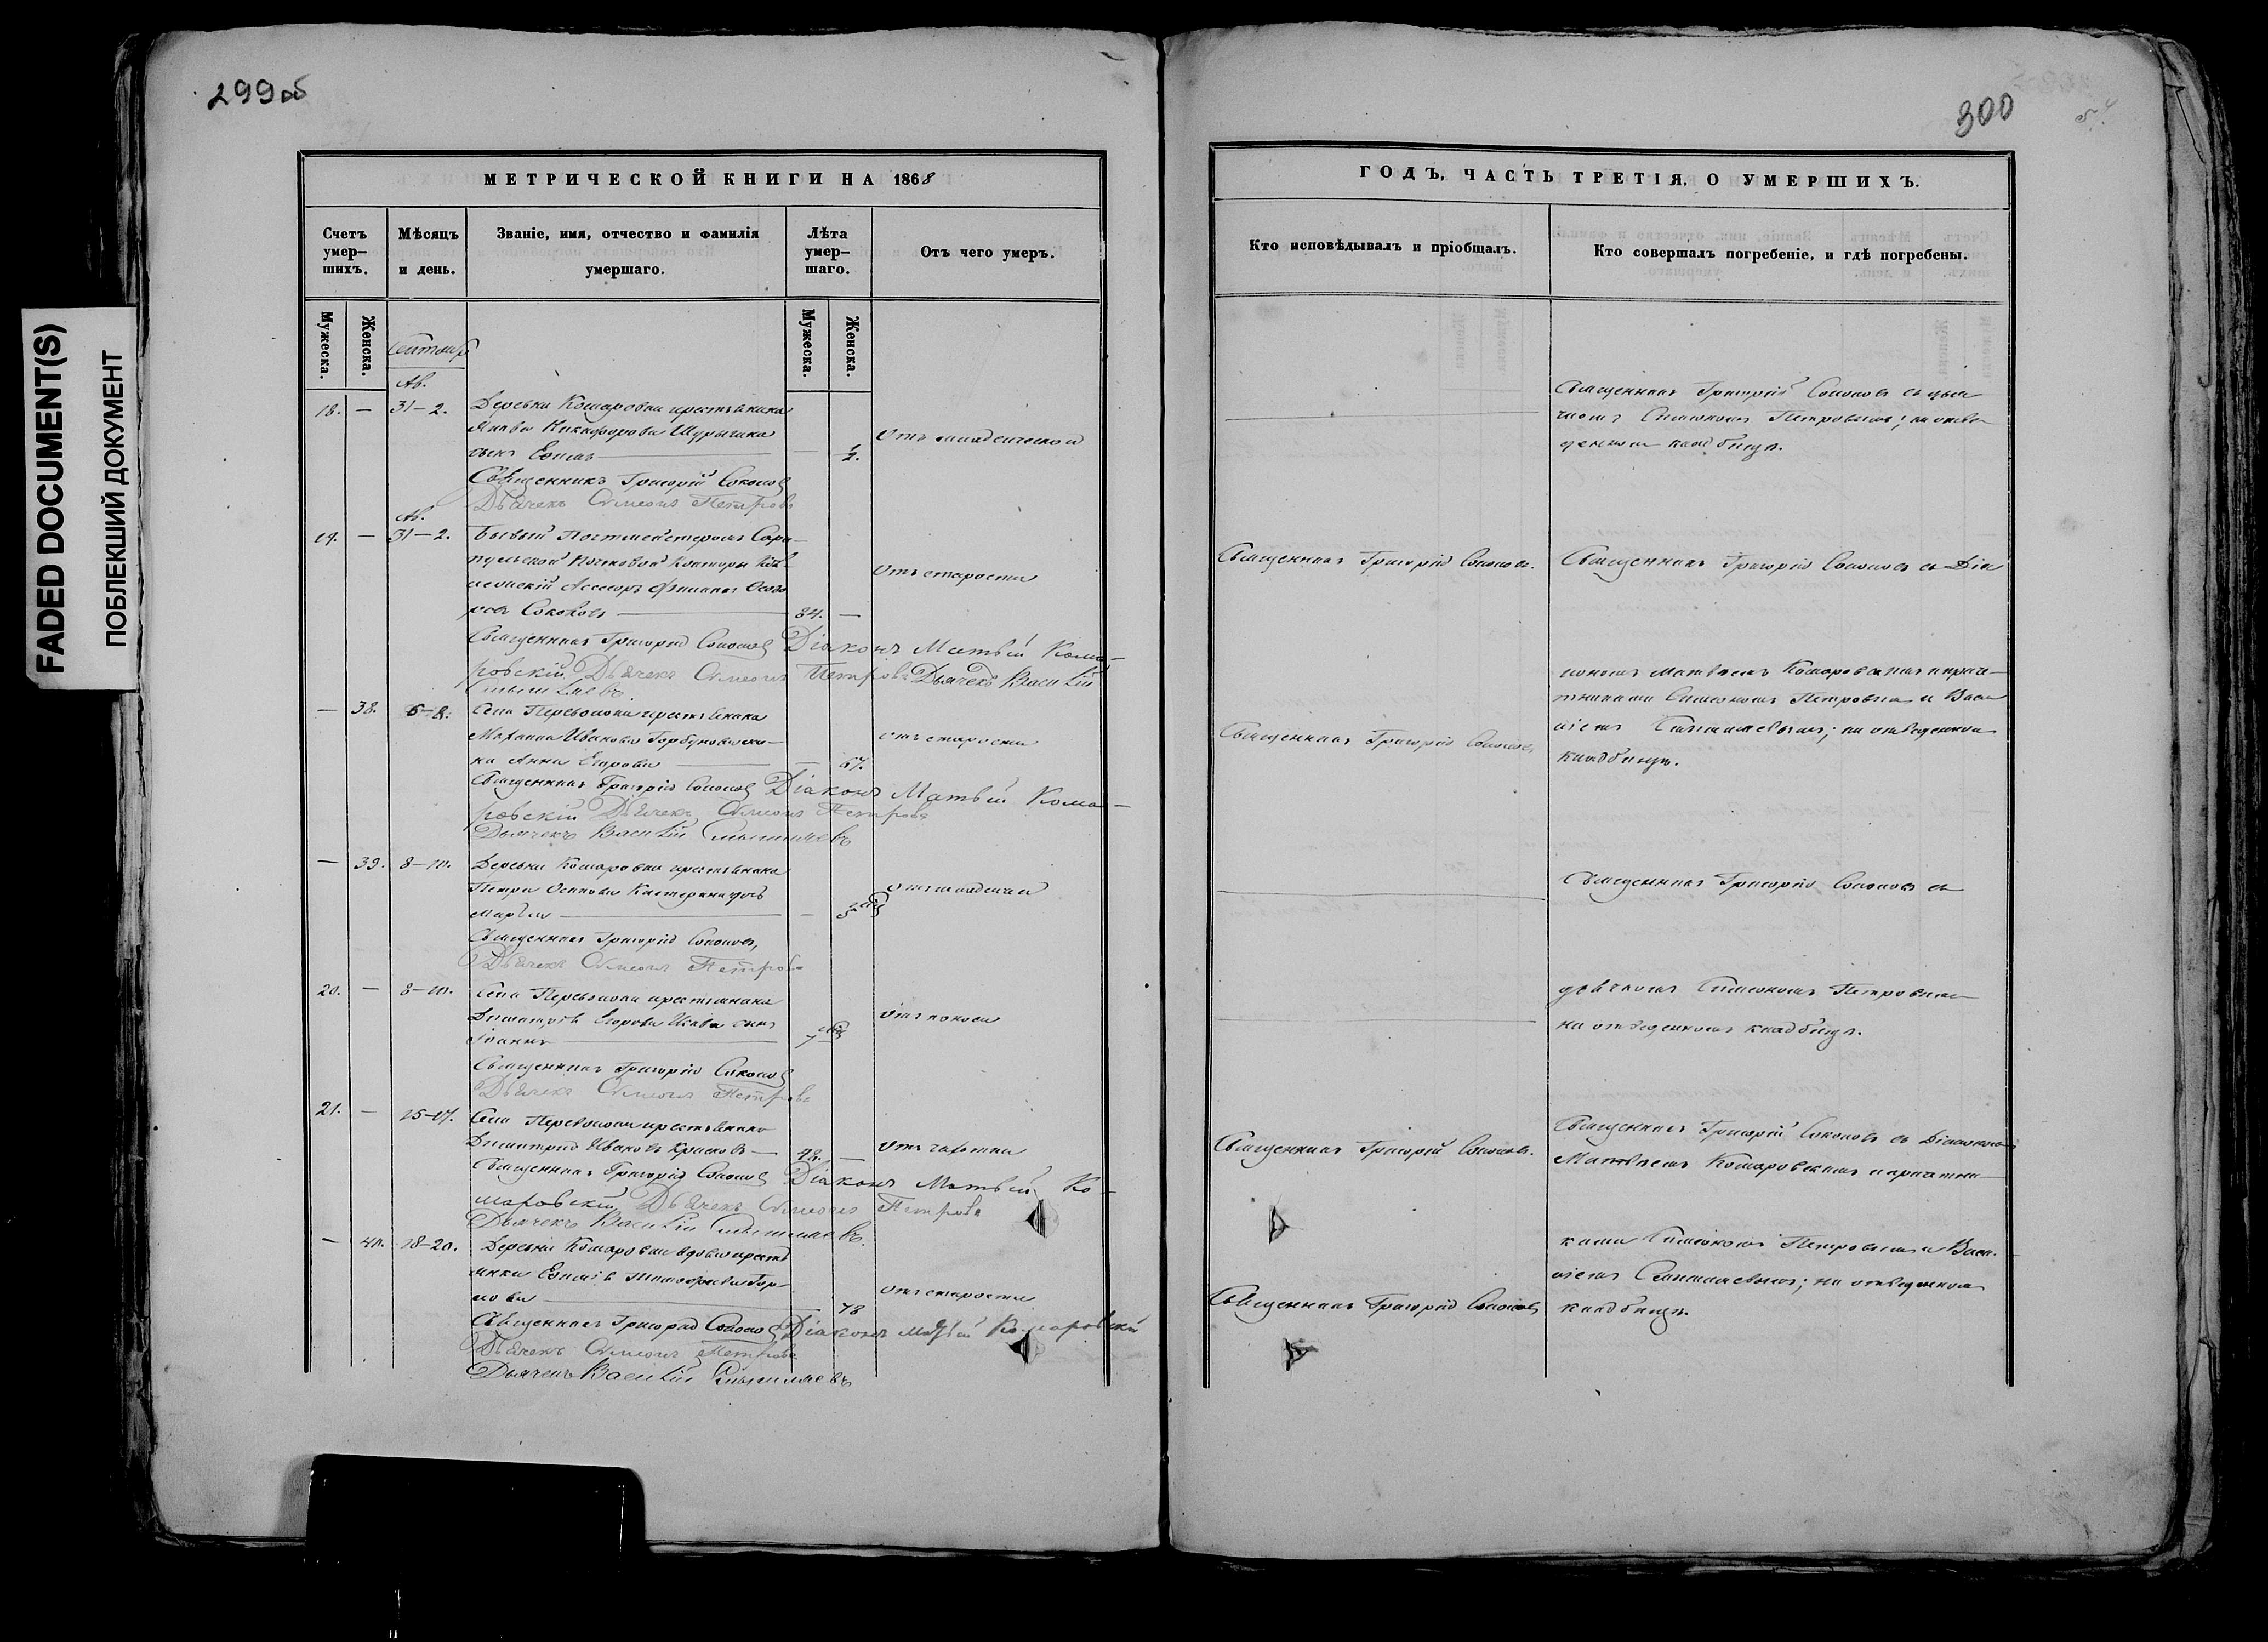 299об
МЕТРИЧЕСКОЙ КНИГИ НА 1868
Счетъ умер-шихъ.
Мѣсяцъ и день.
Званіе, имя, отчество и фамилія умершаго.
Лѣта умер-шаго.
Отъ чего умеръ.
Мужеска.
Женска.
Мужеска.
Женска.
Ав.
18. — 31-2. Деревни Комаровки крестьянина
Якова Никифорова
сынъ — Отъ младенческой
Священникъ Григорій Соколовъ
Дьячекъ Симеонъ Петровъ
Ав.
19. — 31-2. Бывый Почтмейстеромъ Сара-
пульской Почтовой Конторы Кол
лежскій Ассесоръ Отъ старости
Соколовъ — 84. —
Священникъ Григорій Соколовъ Діаконъ Матвѣй Кома-
ровскій Дьячекъ Симеонъ Петровъ Дьячекъ Василій
— 38. 6-8. Села Перевознаго крестьянина
Ивановa Горбунова же- отъ старости
на Анна Егорова — — 67.
Священникъ Григорій Соколовъ Діаконъ Матвѣй Кома-
ровскій Дьячекъ Симеонъ Петровъ
Дьячекъ Василій
— 39. 8-10. Деревни Комаровки крестьянина
Петра Осипова дочь
Священникъ Григорій Соколовъ,
Дьячекъ Симеонъ Петровъ
20. — 8-10. Села Перевознаго крестьянина
Егорова сынъ Отъ поноса
Іоаннъ —
Священникъ Григорій Соколовъ
Дьячекъ Симеонъ Петровъ
21. — 15-17. Села Перевознаго крестьянинъ
Димитрій Ивановъ — 48. — Отъ чахотки
Священникъ Григорій Соколовъ Діаконъ Матвѣй Ко-
маровскій, Дьячекъ Симеонъ Петровъ
Дьячекъ Василій
— 40. 18-20. Деревни Комаровки вдова кресть
янка
78 Отъ старости
Священникъ Григорій Соколовъ Діаконъ Матвѣй Комаровскій
Дьячекъ Симеонъ Петровъ
Дьячекъ Василій
300
ГОДЪ, ЧАСТЬ ТРЕТІЯ, О УМЕРШИХЪ.
Кто исповѣдывалъ и пріобщалъ.
Кто совершалъ погребеніе, и гдѣ погребены.
Священникъ Григорій Соколовъ съ дья
чкомъ Симеономъ Петровымъ; на отве
денномъ кладбищѣ.
Священникъ Григорій Соколовъ.
Священникъ Григорій Соколовъ съ Діа
кономъ Матвѣемъ Комаровскимъ и приче-
тниками Симеономъ Петровымъ и Васи
ліемъ ; на отведенномъ
кладбищѣ.
Священникъ Григорій Соколовъ
Священникъ Григорій Соколовъ съ
дьячкомъ Симеономъ Петровымъ
на отведенномъ кладбищѣ.
Священникъ Григорій Соколовъ.
Священникъ Григорій Соколовъ съ Діакономъ
Матвѣемъ Комаровскимъ и причетни
ками Симеономъ Петровымъ и Васи-
ліемъ ; на отведенномъ
кладбищѣ.
Священникъ Григорій Соколовъ
FADED DOCUMENT(S)
ПОБЛЕКШИЙ ДОКУМЕНТ